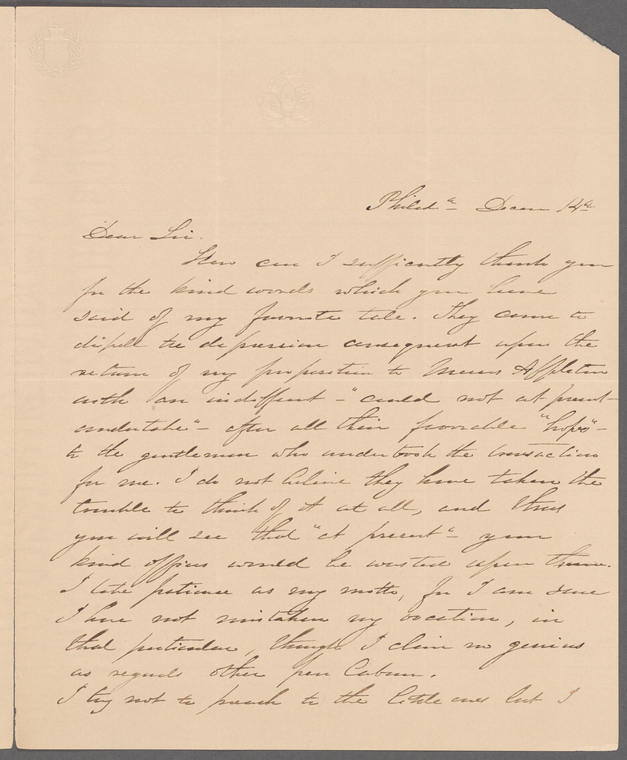 Philada Decem 14th
Dear Sir.
How can I sufficiently thank you
for the kind words which you have
said of my favorite tale. They came to
dispell the depression consequent upon the
return of my proposition to Messrs Appleton
with an indifferent - "could not at present
undertake" - after all their favorable "hopes" -
to the gentleman who undertook the transaction
for me. I do not believe they have taken the
trouble to think of it at all, and thus
you will see that "at present" your
kind offices would be wasted upon them.
I take patience as my motto, for I am sure
I have not mistaken my vocation, in
that particular, though I claim no genius
as regards other pen labour.
I try not to preach to the little ones but I